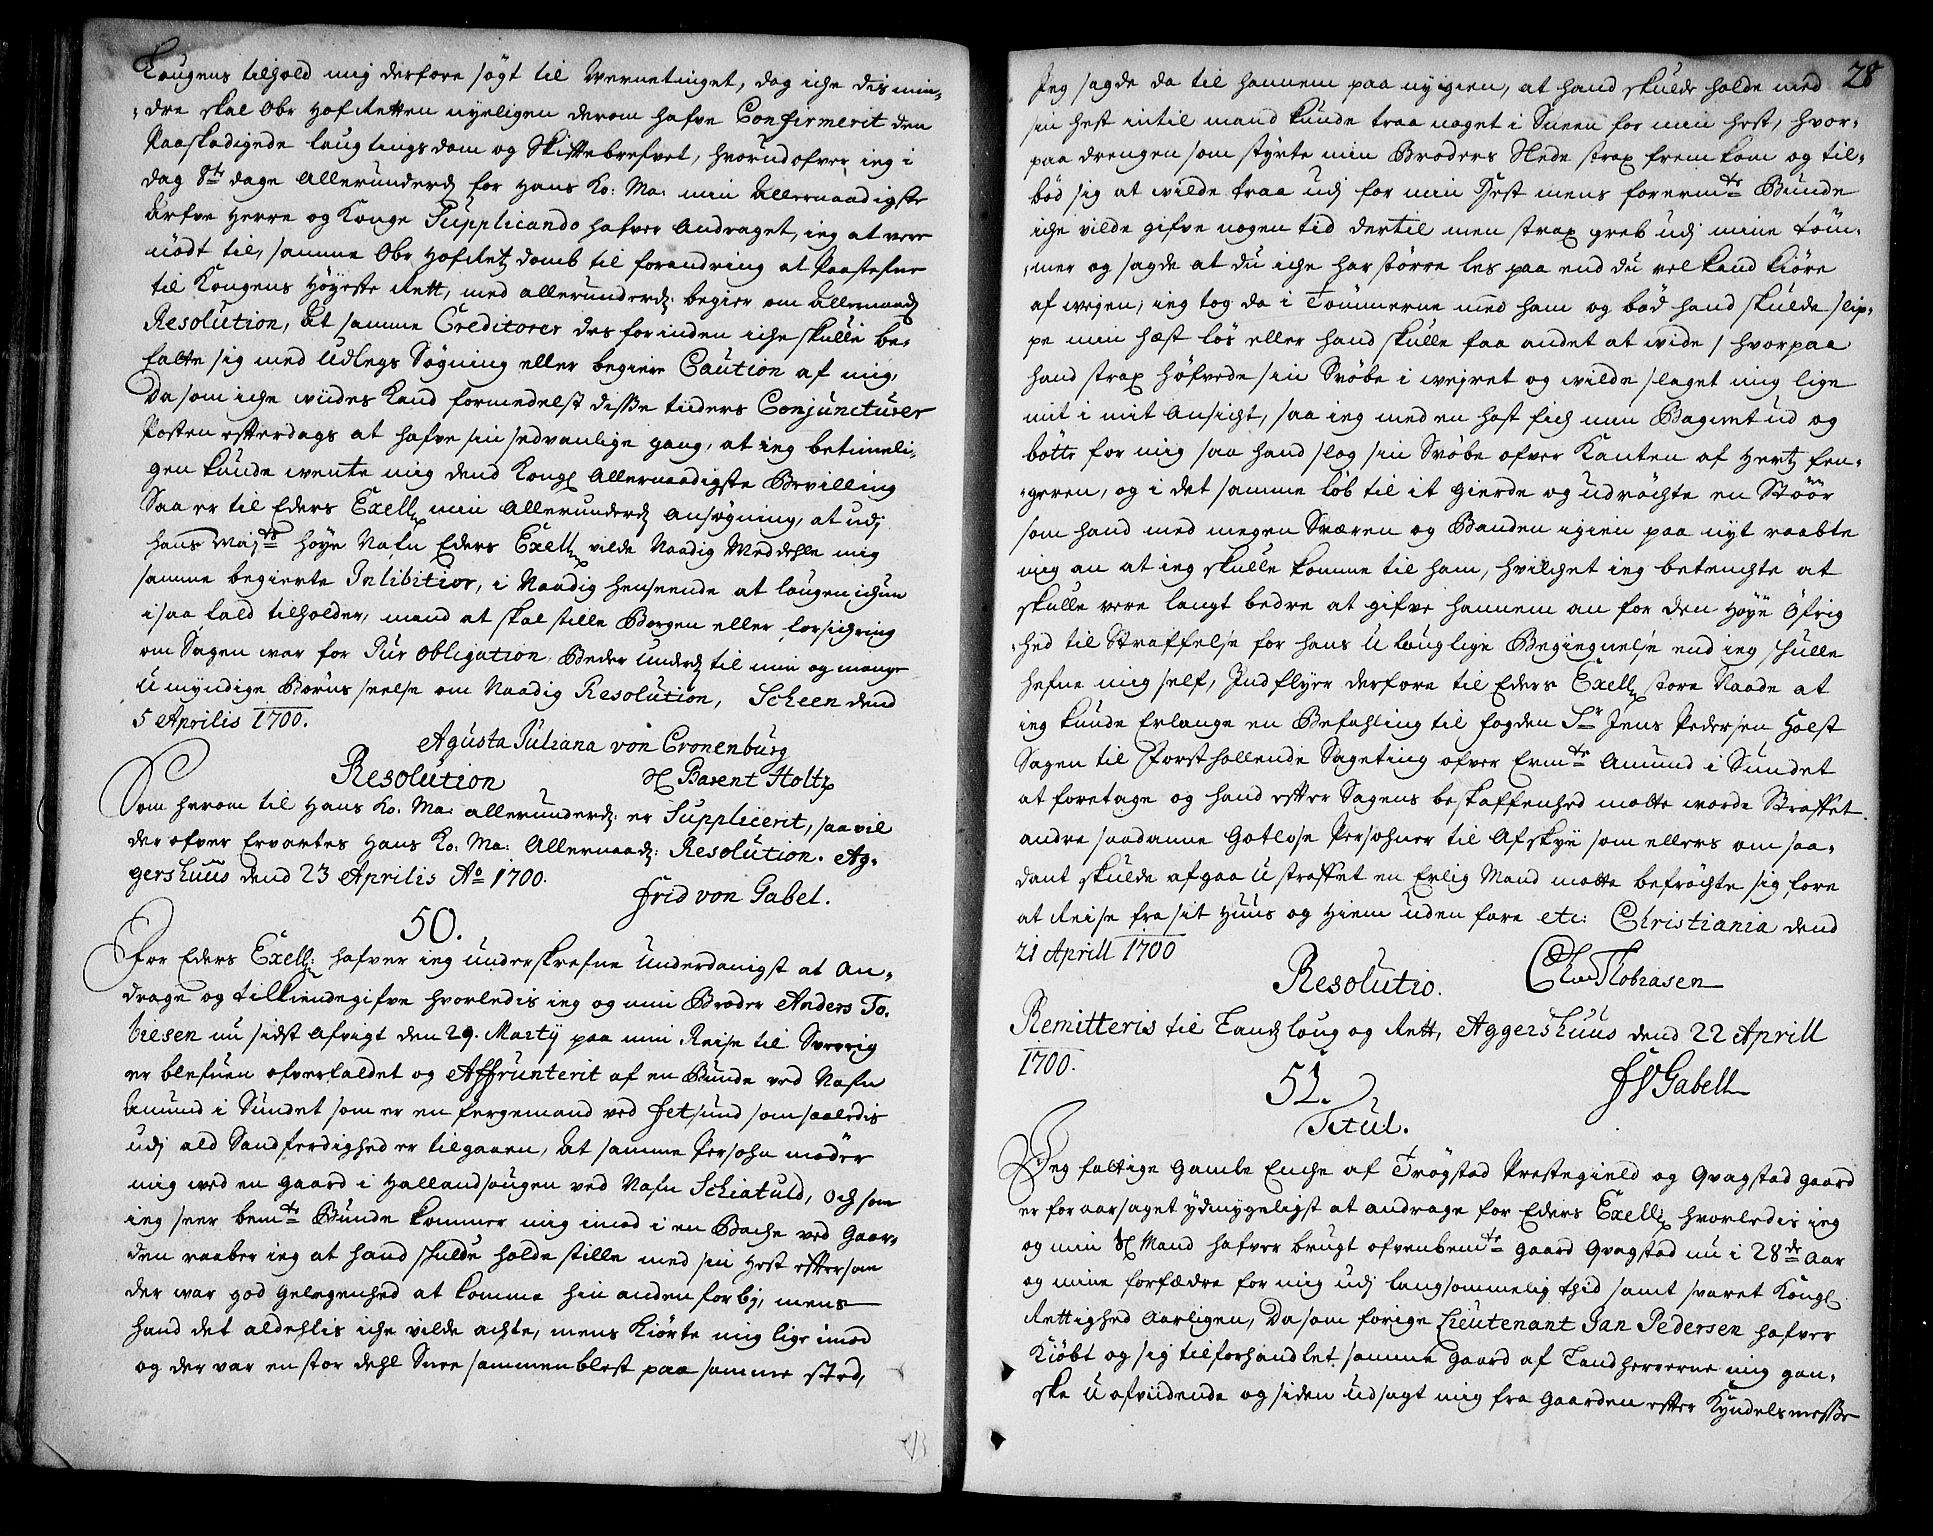 Lougens tilhold mig derfore søgt til Wernetinget, dog iche des min-
dre skal Obr Hof Retten nyeligen derom hafve Confirmerit den
Paaskadigede laugtings dom og Skiftebrefvet, hvorudofver ieg i
dag 8te dage Allerunderd for Hans Ko: Ma: min Allernaadigste
Arfve Herre og Konge Supplicando hafver Andraget, ieg at vere
nødt til, samme Obr Hofretz domb til forandring at Paastefne
til Kongens Høyeste Rett, med allerunderd: begier om Allernaad
Resolution, At samme Creditorer des forinden iche skulle be-
fatte sig med Udlegs Søgning eller begiere Caution af mig,
Da som iche vides Kand formedelst disse tiders Conjuncturer
Posten efterdags at hafve sin sedvanlige gang, at ieg betimeli-
gen kunde wente mig dend Kongl Allernaadigste Bevilling
Saa er til Eders Exell min Allerunderd Ansøgning, at udj
hans Majts høye Nafn Eders Exell vilde Naadig Meddehle mig
samme begierte Inhibition, i Naadig henseende at lougen ichun
i saa fald tilholder, mand at skal stille Borgen eller forsichring
om Sagen war for Pur obligation. Beder Underd til min og mange
U myndige Børns seelse om Naadig Resolution, Scheen dend
5 Aprilis 1700.
Agusta Juliana von Cronenburg
Resolution Sl Barent Holtz
Som herom til Hans Ko. Ma: allerunderd: er Supplicerit, saa vil
der ofver Ervartes Hans Ko: Ma: Allernaad: Resolution. Ag-
gershuus dend 23 Aprilis Ao 1700.
Frid von Gabel.
50.
For Eders Exell: hafver ieg underskrefne Underdanigst at An-
drage og tilkiendegifve hvorledis ieg og min Broder Anders To-
biesen nu sidst Afvigt den 29. Marty paa min Reise til Sverrig
er blefuen ofverfaldet og Affrunterit af en Bunde ved Nafn
Amund i Sundet som er en fergemand ved Fetsund som saaledis
udj ald Sandferdighed er tilgaaen, At samme Persohn møder
mig ved en gaard i Hallandsougen ved Nafn Schiatuld, och som
ieg seer bemte Bunde kommer mig imod i en Bache ved Gaar-
den raaber ieg at hand skulde holde stille med sin Hest eftersom
der war god Gelegenhed at komme hin anden forbj, mens
hand det aldehlis iche vilde achte, mens Kiørte mig lige imod
og der var en stor dehl Snee sammenblest paa samme sted,
28
Jeg sagde da til hannem paa ny igien, at hand skulde holde med
sin hest intil mand kunde traa noget i Sneen for min hest, hvor-
paa drengen som styrte min Broders Slede strax frem kom og til-
bød sig at wilde traa udj for min Hest mens forermte Bunde
iche vilde gifve nogen tid dertil men strax greb udj mine Tøm-
mer og sagde at du iche har større les paa end du vel kand kiøre
af weyen, ieg tog da i Tømmerne med ham og bød hand skulde slip-
pe min hæst løs eller hand skulle faa andet at vide / hvorpaa
hand strax høfvede sin Svøbe i weyret og wilde slaget mig lige
mit i mit Ansicht, saa ieg med en hast fich min Baginet ud og
bøtte for mig saa hand slog sin Svøbe ofver Kanten af Hertz fen-
geren, og i det samme løb til it gierde og udrøchte en Støør
som hand med megen Sværen og Banden igien paa nyt raabte
mig an at ieg skulle komme til ham, hvilchet ieg betenchte at
skulle vere langt bedre at gifve hannem an for den Høye Øfrig
hed til Straffelse for hans U louglige Begiegnelse end ieg skulle
hefne mig self, Indflyer derfore til Eders Exell store Naade at
ieg kunde Erlange en Befahling til fogden Sr Jens Pedersen Holst
Sagen til Først hollende Sageting ofver Ermte Amund i Sundet
at foretage og hand efter Sagens beskaffenhed motte worde Straffet
andre saadanne Gotlose Persohner til Afskye som ellers om saa-
dant skulde afgaa U straffet en Erlig Mand motte befrøchte sig fore
at Reise fra sit Huus og Hiem uden fare etc: Christiania dend
21 Aprill 1700
Resolutio. Chr Thobiasen
Remitteris til Landsloug og Rett, Aggershuus dend 22 Aprill
1700.
FVGabell
51.
Titul.
Jeg fattige Gamle Enche af Trøgstad Prestegield og Qvagstad gaard
er foraarsaget ydmygeligst at andrage for Eders Exell hvorledis ieg
og min Sl Mand hafver brugt ofvenbemte gaard Qvagstad nu i 28de Aar
og mine forfædre for mig udj langsommelig thid samt svaret Kongl
Rettighed Aarligen, Da som forige Lieutenant Jan Pedersen hafver
Kiøbt og sig tilforhandlet samme gaard af Landherrerne mig gan-
ske U afvidende og siden Udsagt mig fra Gaarden efter Kyndelsmesse